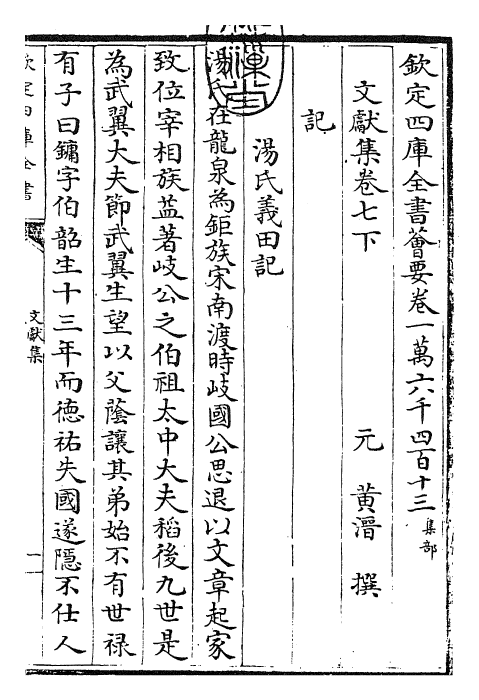 欽定四庫全書薈要卷一萬六千四百十三 集部
文獻集卷七下
元 黃溍 撰
記
湯氏義田記
湯氏在龍泉為鉅族宋南渡時岐國公思退以文章起家
致位宰相族益著岐公之伯祖太中大夫稻後九世是
為武翼大夫節武翼生望以父蔭讓其弟始不有世祿
有子曰鏞字伯韶生十三年而德祐失國遂隱不仕人
欽定四庫全書
文獻集
一